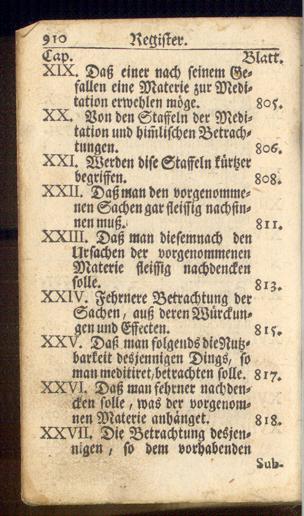 910 Register.
Cap. Blatt.
XIX. Daß einer nach seinem Ge-
fallen eine Materie zur Medi-
tation erwehlen möge. 805.
XX. Von den Staffeln der Medi-
tation und him̃lischen Betrach-
tungen. 806.
XXI. Werden dise Staffeln kürtzer
begriffen. 808.
XXII. Daß man den vorgenomme-
nen Sachen gar fleissig nachsin-
nen muß. 811.
XXIII. Daß man diesemnach den
Ursachen der vorgenommenen
Materie fleissig nachdencken
solle. 813.
XXIV. Fehrnere Betrachtung der
Sachen, auß deren Würckun-
gen und Effecten. 815.
XXV. Daß man folgends die Nutz-
barkeit desjennigen Dings, so
man meditiret, betrachten solle. 817.
XXVI. Daß man fehrner nachden-
cken solle, was der vorgenom-
nen Materie anhänget. 818.
XXVII. Die Betrachtung desjen-
nigen, so dem vorhabenden
Sub-